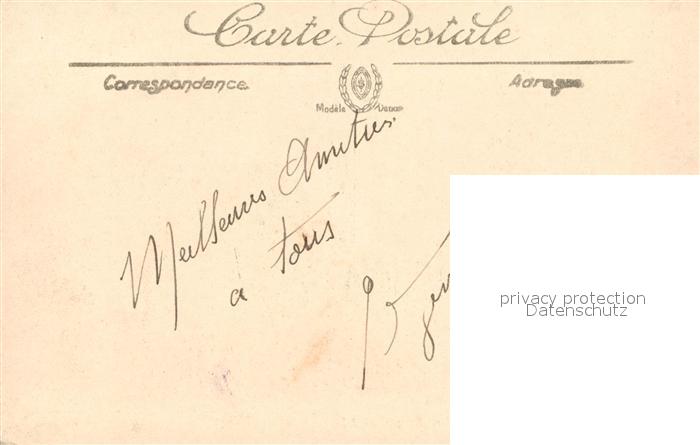 Carte Postale
Correspondance Adresse
Modèle
Meilleures Amitiés
à tous
privacy protection
Datenschutz